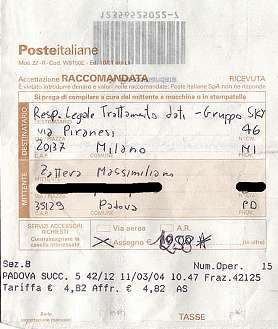 12356525022-7
Posteitaliane
Accettazione RACCOMANDATA RICEVUTA
È vietato introdurre denaro e valori nelle raccomandate: Poste Italiane SpA non ne risponde
Si prega di compilare a cura del mittente a macchina o in stampatello
DESTINATARIO
Resp. Legale Trattamento dati - Gruppo SKY
via Piranesi 46
20137 Milano MI
C.A.P. COMUNE PROV.
MITTENTE
Zattera Massimiliano
35129 Padova PD
C.A.P. COMUNE PROV.
SERVIZI ACCESSORI RICHIESTI
Contrassegnare la casella interessata
A.R.
Assegno €
Sez.8 Num.Oper. 15
PADOVA SUCC. 5 42/12 11/03/04 10.47 Fraz.42125
Tariffa € 4,82 Affr. € 4,82 AS